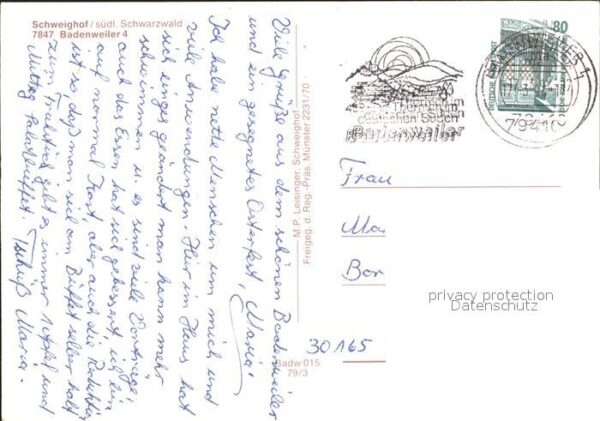 Schweighof / südl. Schwarzwald
7847 Badenweiler 4
Viele Grüße aus dem schönen Badenweiler
und ein gesegnetes Osterfest, Maria!
Ich habe nette Menschen um mich und
viele Anwendungen. Hier im Haus hat
sich einiges geändert man kann mehr
schwimmen u. es sind viele Vorträge,
auch das Essen hat sich gebessert, ich bin
auf normal Kost, aber auch die Reduktion
ist so daß man sich am Büffet selber holt
zum Frühstück gibt es immer und
Mittag Salatbüffet. Tschüß Maria.
M.P. Leisinger, Schweighof
Freigeg. d. Reg.-Präs. Münster 2231/70
Badw 015
79/3
Badenweiler
80
DEUTSCHE
BADENWEILER 1
79410
Frau
Ma
Bor
30165
privacy protection
Datenschutz